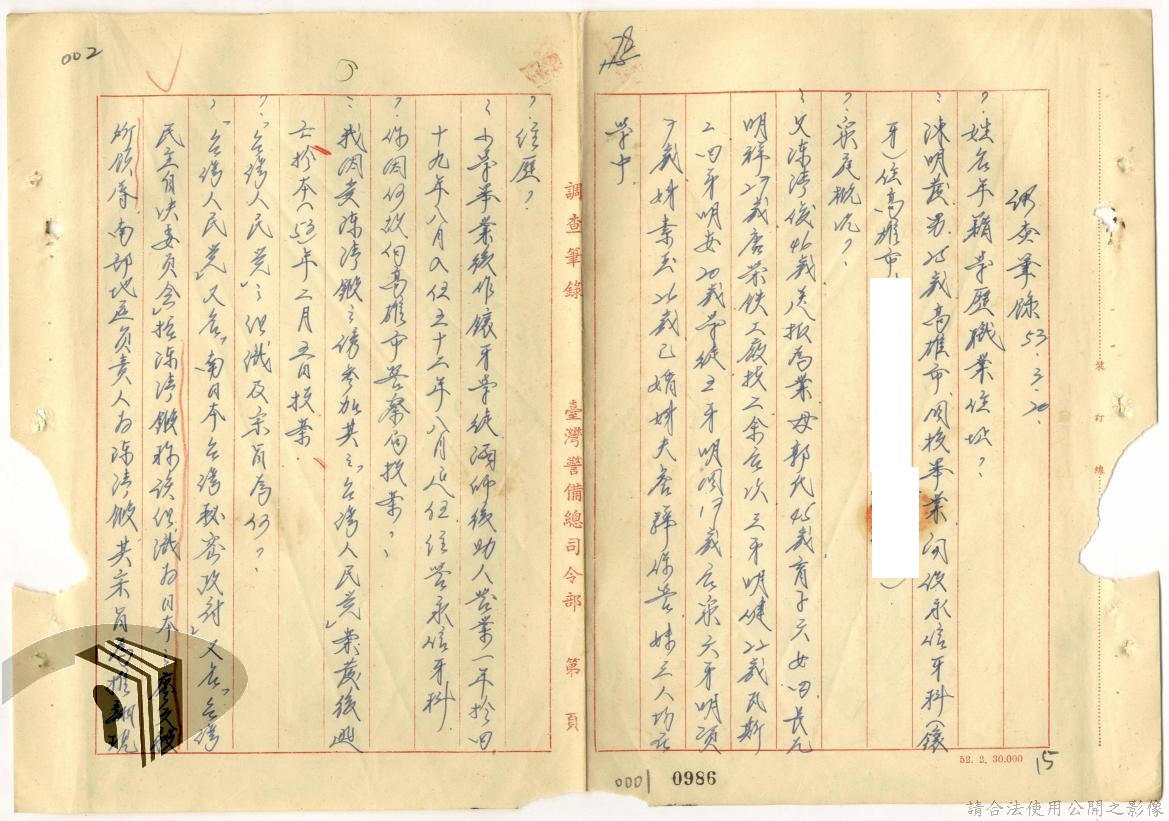 調查筆錄 53.3.20.
？姓名年籍學歷職業住址？
：陳明發 男 28歲 高雄市 國校畢業 開設永信牙科（鑲
牙）住高雄市 ）
？家庭概況？
：父陳清俊46歲 送报為業 母郭氏45歲 育子六女四 長兄
明祥27歲 唐榮鉄工廠技工 余居次 三弟明健22歲瓦斯
四弟明安20歲學徒 五弟明 17歲在家 六弟明
7歲 姊素玉26歲已婚 姊夫詹 妹三人均在
學中.
？經歷？
：小學畢業後作鑲牙學徒 滿師後助人營業一年於四
十九年八月入伍 五十二年八月退伍經營永信牙科
？你因何故向高雄市警察局投案？
：我因受陳清鍛之誘參加其「台湾人民党」案發後逃
亡於本（53）年二月 日投案.
？「台湾人民党」之組織及宗旨為何？
：「台湾人民党」又名「南日本台湾秘密政府」又名「台湾
民主自決委員会」据陳清鍛称該組織為日本之廖文毅
所領導.南部地區負責人為陳清鍛 其宗旨為推翻現
調查筆錄 臺灣警備總司令部 第 頁
裝 訂 線
52. 2. 30.000
15
0001
0986
002
請合法使用公開之影像